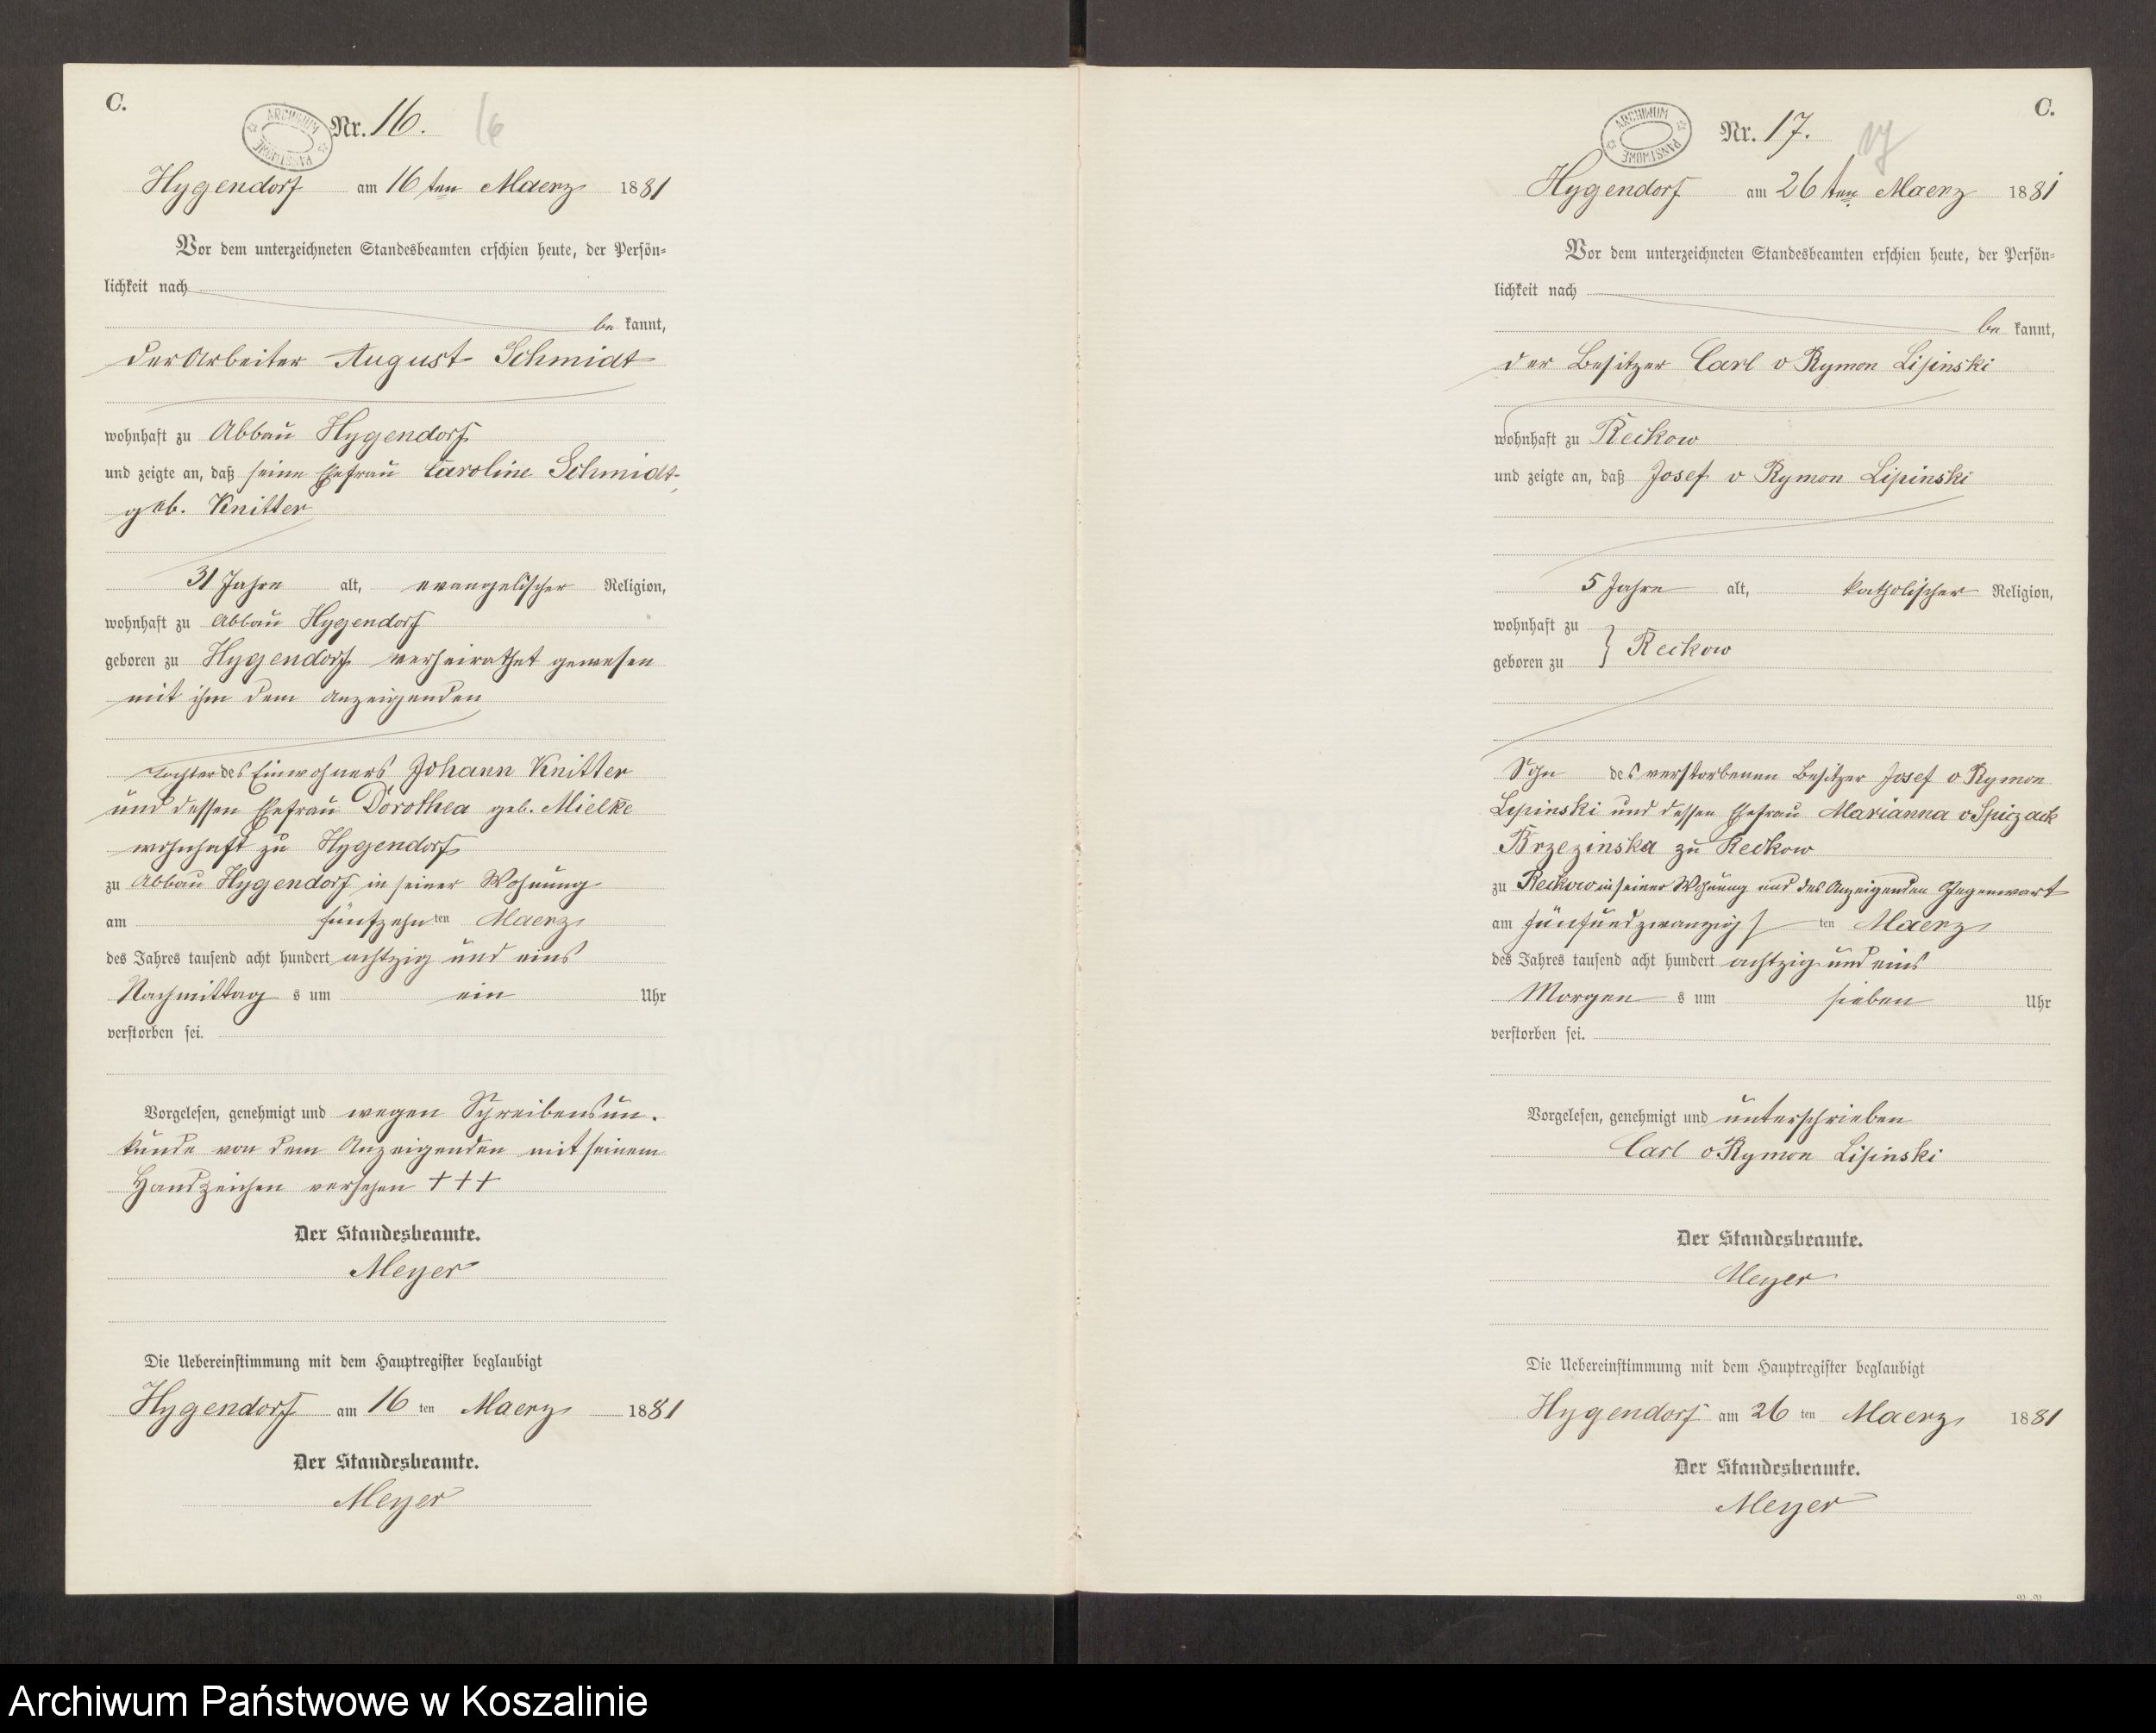 C.
ARCHIWUM PAŃSTWOWE
Nr. 16. 16
Hygendorf am 16 ten Maerz 1881
Vor dem unterzeichneten Standesbeamten erschien heute, der Persön-
lichkeit nach
be kannt,
der Arbeiter August Schmidt
wohnhaft zu Abbau Hygendorf
und zeigte an, daß seine Ehefrau Caroline Schmidt
geb. Knitter
31 Jahre alt, evangelischer Religion,
wohnhaft zu Abbau Hygendorf
geboren zu Hygendorf verheirathet gewesen
mit ihm dem Anzeigenden
Tochter des Einwohners Johann Knitter
und dessen Ehefrau Dorothea geb. Mielke
wohnhaft zu Hygendorf
zu Abbau Hygendorf in seiner Wohnung
am fünfzehn ten Maerz
des Jahres tausend acht hundert achtzig und eins
Nachmittag s um ein Uhr
verstorben sei.
Vorgelesen, genehmigt und wegen Schreibensun-
kunde von dem Anzeigenden mit seinem
Handzeichen versehen +++
Der Standesbeamte.
Meyer
Die Uebereinstimmung mit dem Hauptregister beglaubigt
Hygendorf am 16 ten Maerz 1881
Der Standesbeamte.
Meyer
C.
ARCHIWUM PAŃSTWOWE
Nr. 17. 17
Hygendorf am 26 ten Maerz 1881
Vor dem unterzeichneten Standesbeamten erschien heute, der Persön-
lichkeit nach
be kannt,
der Besitzer Carl v Rymon Lipinski
wohnhaft zu Reckow
und zeigte an, daß Josef v Rymon Lipinski
5 Jahre alt, katholischer Religion,
wohnhaft zu
geboren zu } Reckow
Sohn des verstorbenen Besitzer Josef v Rymon
Lipinski und dessen Ehefrau Marianna v Spiczack
Brzezinska zu Reckow
zu Reckow in seiner Wohnung und des Anzeigenden Gegenwart
am fünfundzwanzigs ten Maerz
des Jahres tausend acht hundert achtzig und eins
Morgen s um sieben Uhr
verstorben sei.
Vorgelesen, genehmigt und unterschrieben
Carl v Rymon Lipinski
Der Standesbeamte.
Meyer
Die Uebereinstimmung mit dem Hauptregister beglaubigt
Hygendorf am 26 ten Maerz 1881
Der Standesbeamte.
Meyer
Archiwum Państwowe w Koszalinie